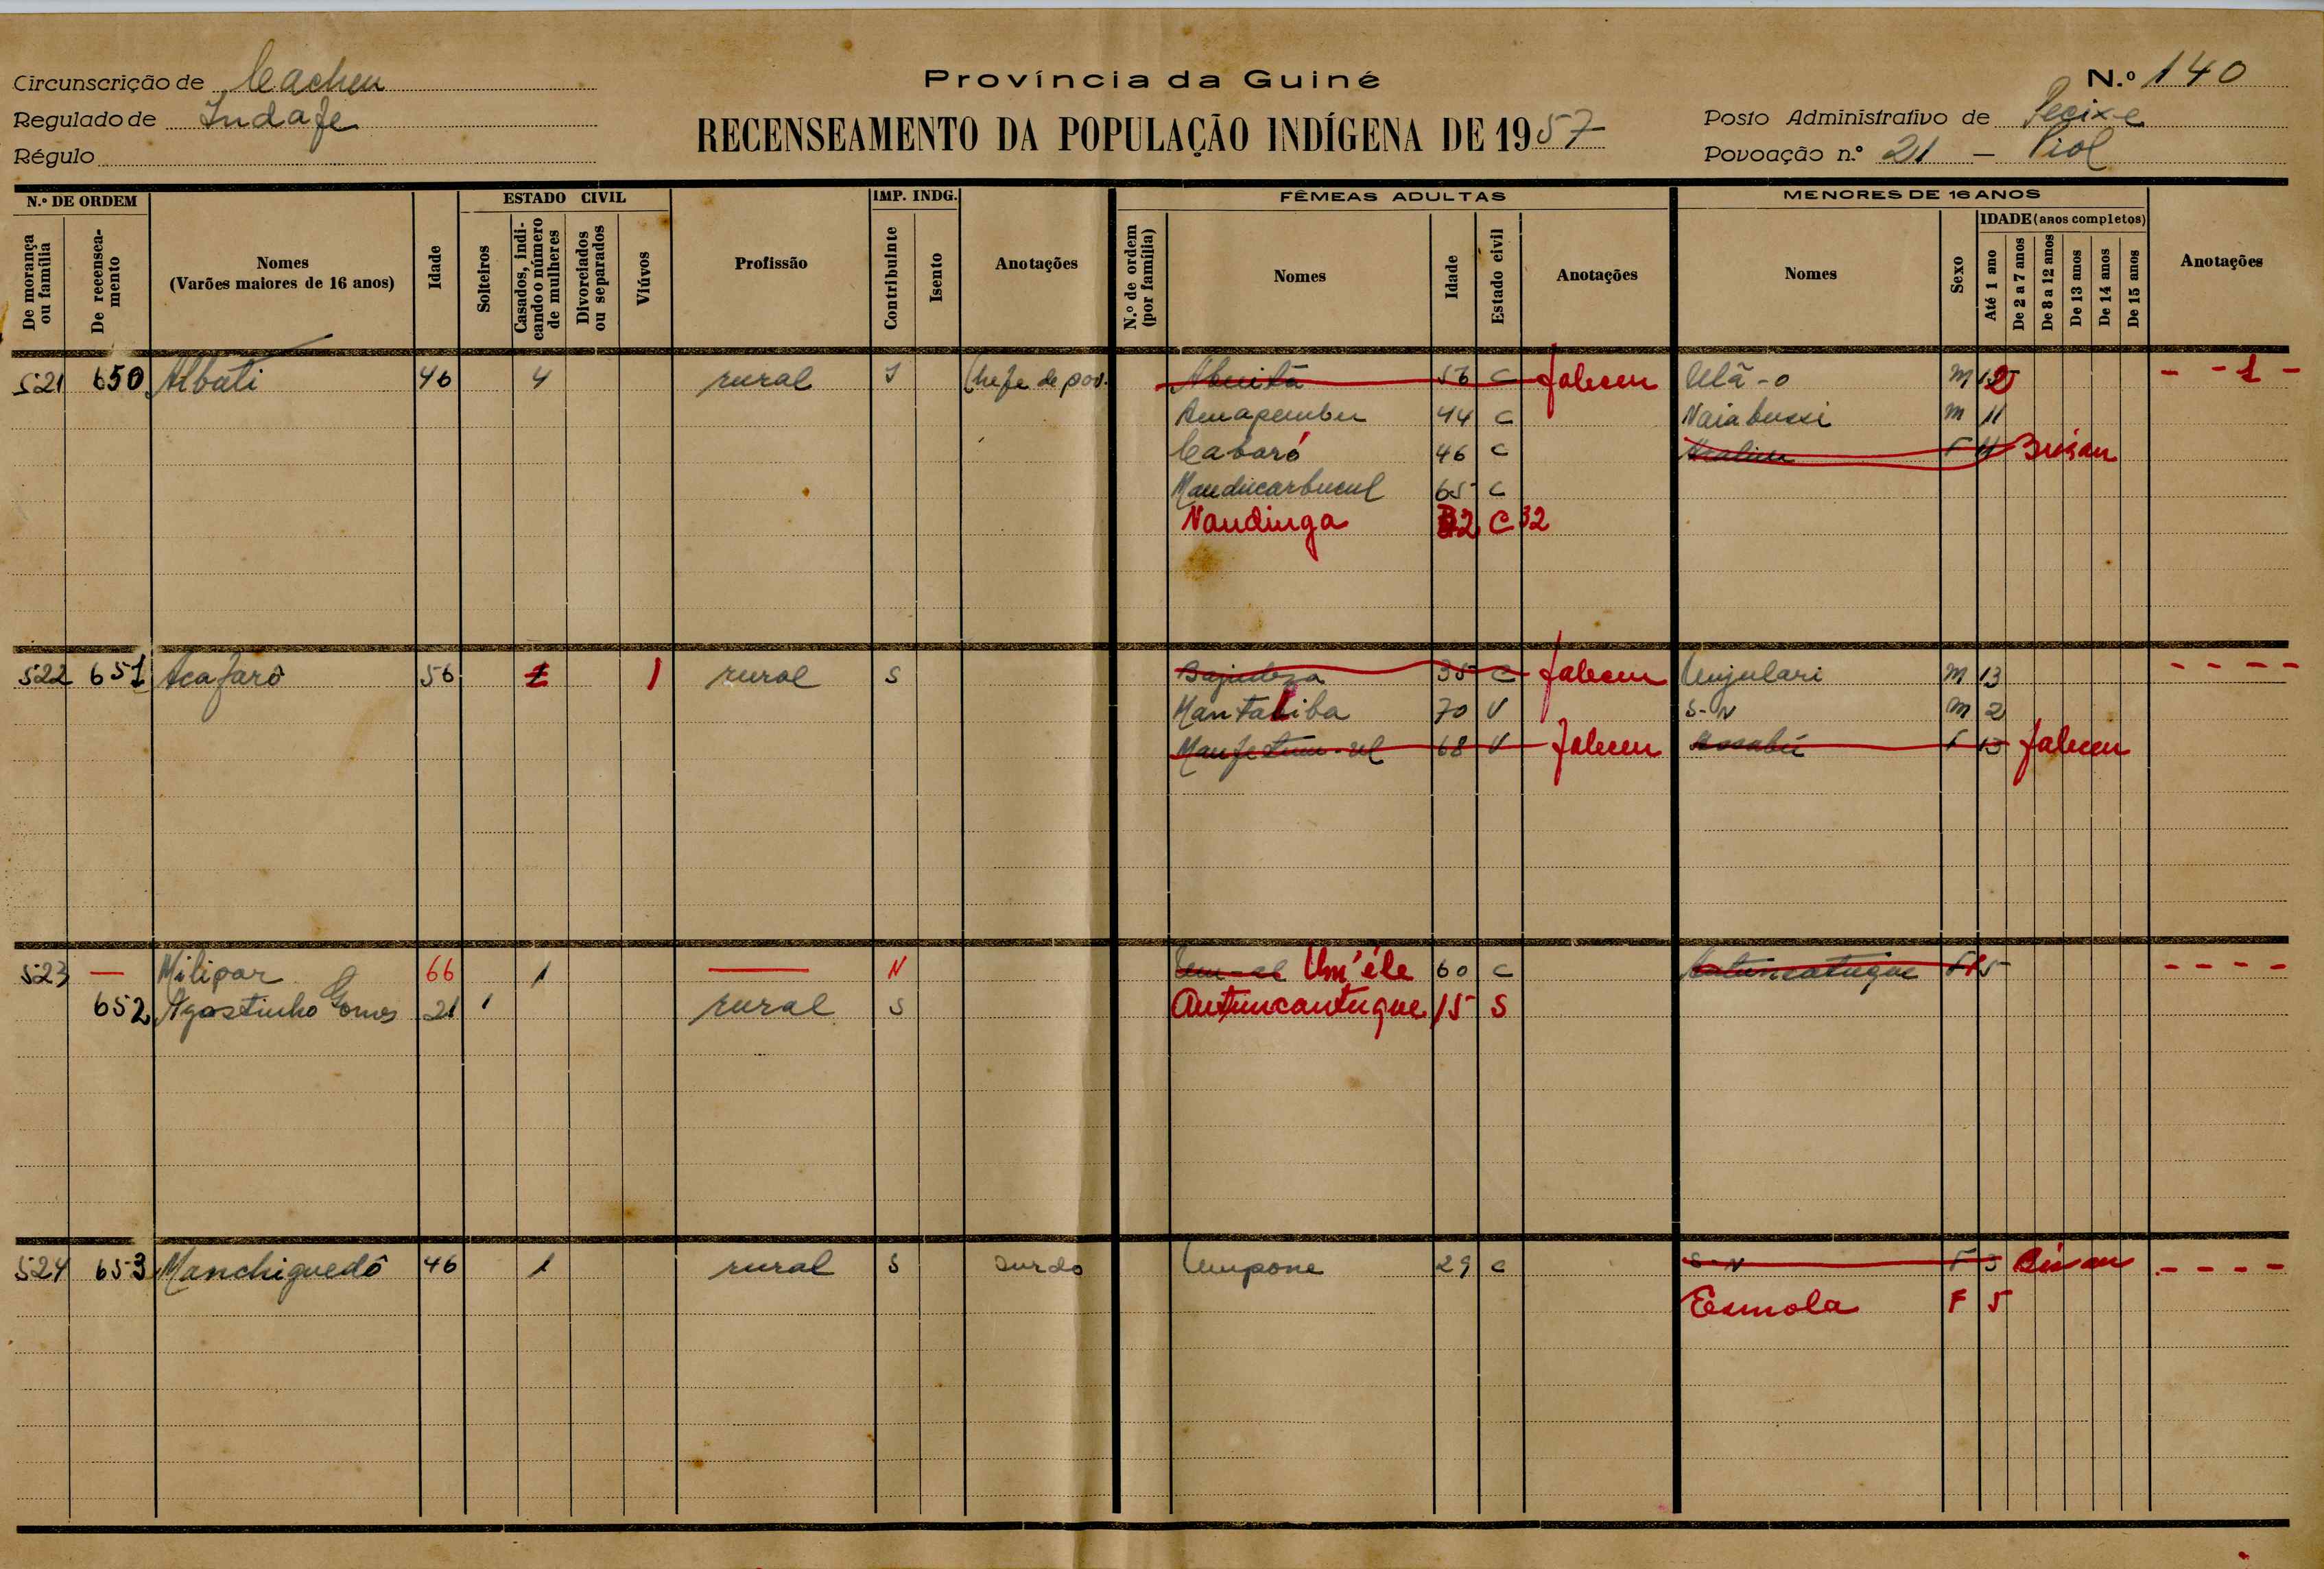 Circunscrição de Cacheu
Província da Guiné
N.º 140
Regulado de Indafe
RECENSEAMENTO DA POPULAÇÃO INDÍGENA DE 1957
Posto Administrativo de Pecixe
Régulo
Povoação n.º 21 — Piol
N.º DE ORDEM
De morança ou família
De recenseamento
Nomes
(Varões maiores de 16 anos)
Idade
ESTADO CIVIL
Solteiros
Casados, indicando o número de mulheres
Divorciados ou separados
Viúvos
Profissão
IMP. INDG.
Contribuinte
Isento
Anotações
FÊMEAS ADULTAS
N.º de ordem (por família)
Nomes
Idade
Estado civil
Anotações
MENORES DE 16 ANOS
Nomes
Sexo
IDADE (anos completos)
Até 1 ano
De 2 a 7 anos
De 8 a 12 anos
De 13 anos
De 14 anos
De 15 anos
Anotações
521 650 Albati 46 4 rural Chefe de pov. 56 C faleceu Ulã-o M - - 1 -
44 C M 11
Cabaró 46 C F
65 C
Nandinga 32 C 32
522 651 Acafarô 56 1 1 rural S 35 C faleceu Unjulari M 13 - - - -
Mantaliba 70 V S-N M 2
68 V faleceu F 13 faleceu
523 — Milipar 66 1 — N Um'éle 60 C F 15 - - - -
652 Agostinho Gomes 21 1 rural S Autuncantuque 15 S
524 653 Manchiguedô 46 1 rural S surdo Umpone 29 C S-N F 3 - - - -
Esmola F 5